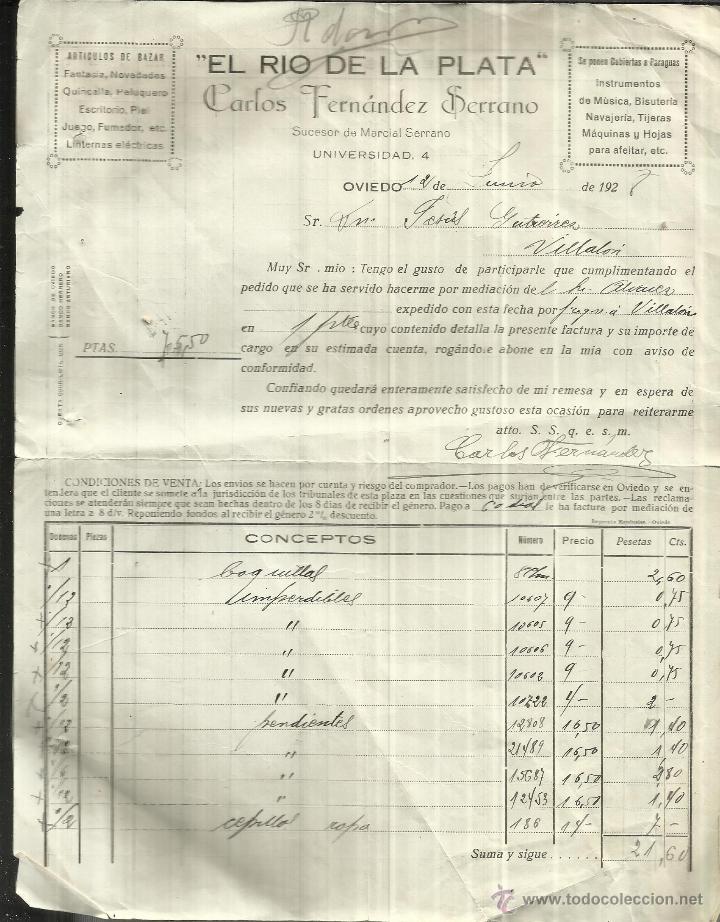 ARTICULOS DE BAZAR
Fantasia, Novedades
Quincalla, Peluquero
Escritorio, Piel
Juego, Fumador, etc.
Linternas eléctricas
"EL RIO DE LA PLATA"
Carlos Fernández Serrano
Sucesor de Marcial Serrano
UNIVERSIDAD, 4
Se ponen Cubiertas a Paraguas
Instrumentos
de Música, Bisutería
Navajería, Tijeras
Máquinas y Hojas
para afeitar, etc.
OVIEDO 12 de Junio de 1928
Sr. Dn. Jesús Gutierrez
Villalón
Muy Sr. mio: Tengo el gusto de participarle que cumplimentando el
pedido que se ha servido hacerme por mediación de
expedido con esta fecha por Villalón
en 1 pte cuyo contenido detalla la presente factura y su importe de
PTAS. 75,50
cargo en su estimada cuenta, rogándole abone en la mia con aviso de
conformidad.
Confiando quedará enteramente satisfecho de mi remesa y en espera de
sus nuevas y gratas ordenes aprovecho gustoso esta ocasión para reiterarme
atto. S. S. q. e. s. m.
Carlos Fernández
BANCO DE OVIEDO
BANCO HERRERO
BANCO ASTURIANO
CONDICIONES DE VENTA: Los envios se hacen por cuenta y riesgo del comprador.—Los pagos han de verificarse en Oviedo y se en-
tenderá que el cliente se somete a la jurisdicción de los tribunales de esta plaza en las cuestiones que surjan entre las partes.—Las reclama-
ciones se atenderán siempre que sean hechas dentro de los 8 dias de recibir el género. Pago a 60 dias le ha factura por mediación de
una letra a 8 d/v. Reponiendo fondos al recibir el género 2 % descuento.
Docenas Piezas CONCEPTOS Número Precio Pesetas Cts.
1 Boquillas 2,60
1/12 Imperdibles 10607 9- 0,75
1/12 " 10605 9- 0,75
1/12 " 10606 9- 0,75
1/12 " 10602 9 0,75
1/2 " 10722 4/- 2 -
1/12 pendientes 12808 16,50 1,40
" 21489 16,50 1,40
" 15687 16,50 2,80
" 12453 16,50 1,40
1/2 cepillos ropa 186 14/- 7 -
Suma y sigue ...... 21,60
www.todocoleccion.net